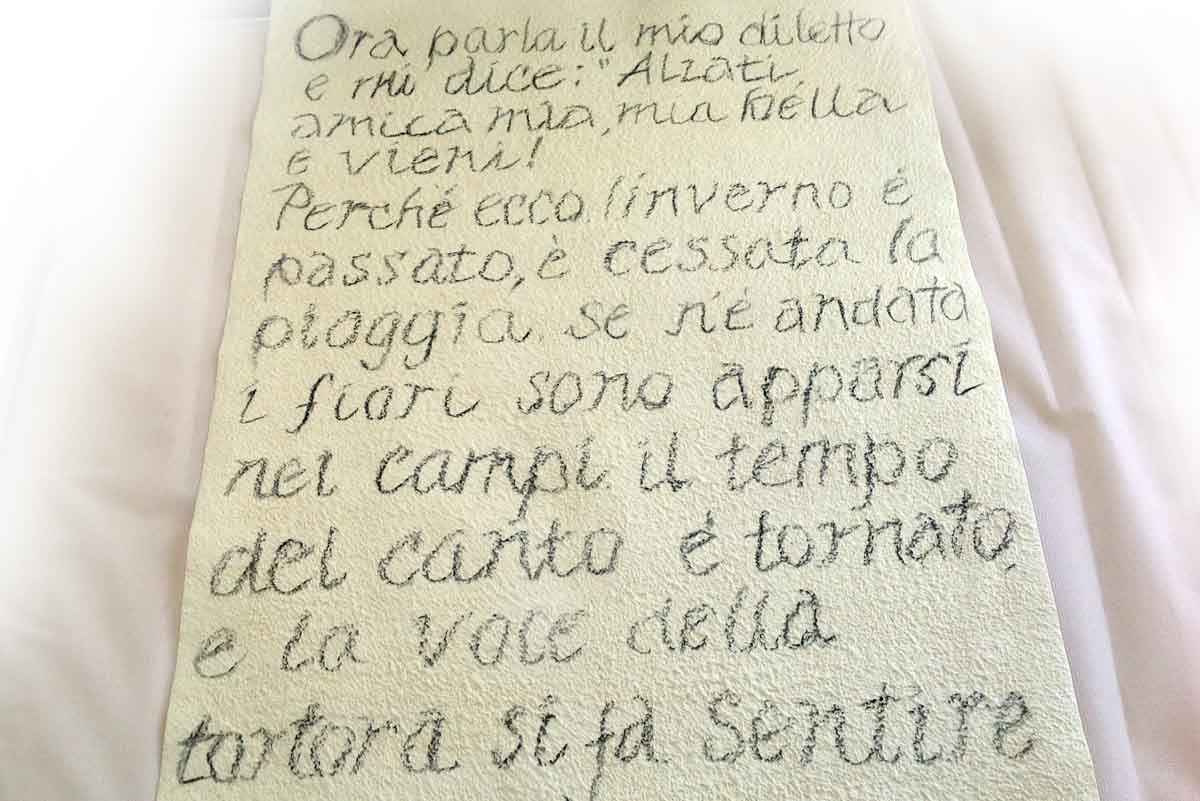 Ora parla il mio diletto
e mi dice: "Alzati,
amica mia, mia bella
e vieni!
Perché ecco l'inverno è
passato, è cessata la
pioggia. se n'è andata
i fiori sono apparsi
nei campi il tempo
del canto é tornato,
e la voce della
tortora si fa sentire